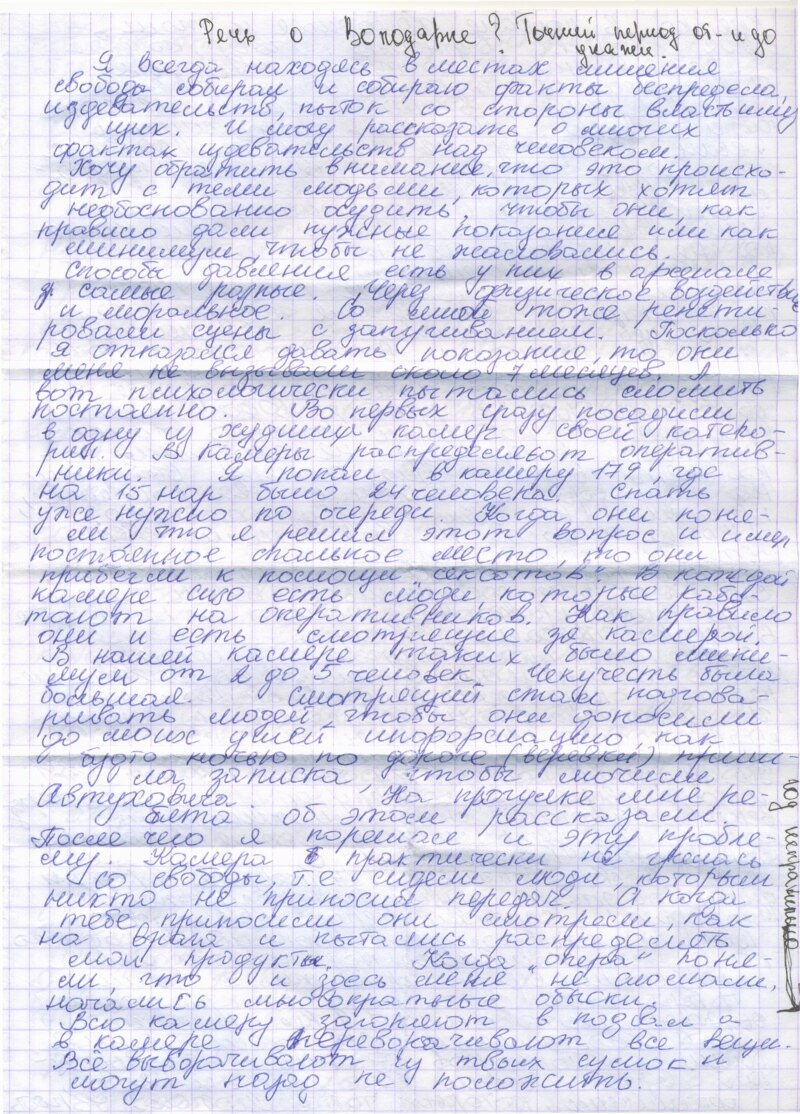 Речь о Володарке? Точный период от- и до
укажи.
Я всегда находясь в местах лишения
свободы собирал и собираю факты беспредела,
издевательств, пыток со стороны властьиму
щих. И могу рассказать о многих
фактах издевательств над человеком.
Хочу обратить внимание, что это происхо-
дит с теми людьми, которых хотят
необоснованно осудить, чтобы они, как
правило дали нужные показания или как
минимум, чтобы не жаловались.
Способы давления есть у них в арсенале
самые разные. Через физическое воздействие
и моральное. Со мной тоже репети-
ровали сцены с запугиванием. Поскольку
я отказался давать показания, то они
меня не вызывали около 7 месяцев. А
вот психологически пытались сломить
постоянно. Во первых сразу посадили
в одну из худших камер своей катего-
рии. В камеры распределяют оператив-
ники. Я попал в камеру 179, где
на 15 нар было 24 человека. Спать
уже нужно по очереди. Когда они поня-
ли что я решил этот вопрос и имел
постоянное спальное место, то они
прибегли к помощи "сексотов". В каждой
камере сизо есть люди, которые рабо-
тают на оперативников. Как правило
они и есть смотрящие за камерой.
В нашей камере таких было мини-
мум от 2 до 5 человек. Текучесть была
большая. Смотрящий стал подгова-
ривать людей, чтобы они доносили
до моих ушей информацию как
будто ночью по дороге (веревки) приш-
ла записка, чтобы мочили
Автуховича. На прогулке мне ре-
бята об этом рассказали.
После чего я порешал и эту пробле-
му. Камера практически не грелась
со свободы, т.е сидели люди, которым
никто не приносил передач. А когда
тебе приносили они смотрели, как
на врага и пытались распределять
мои продукты. Когда "опера" поня-
ли, что и здесь меня не сломали,
начались многократные обыски.
Всю камеру загоняют в подвал а
в камере переворачивают все вещи.
Всё выворачивают из твоих сумок и
могут назад не положить.